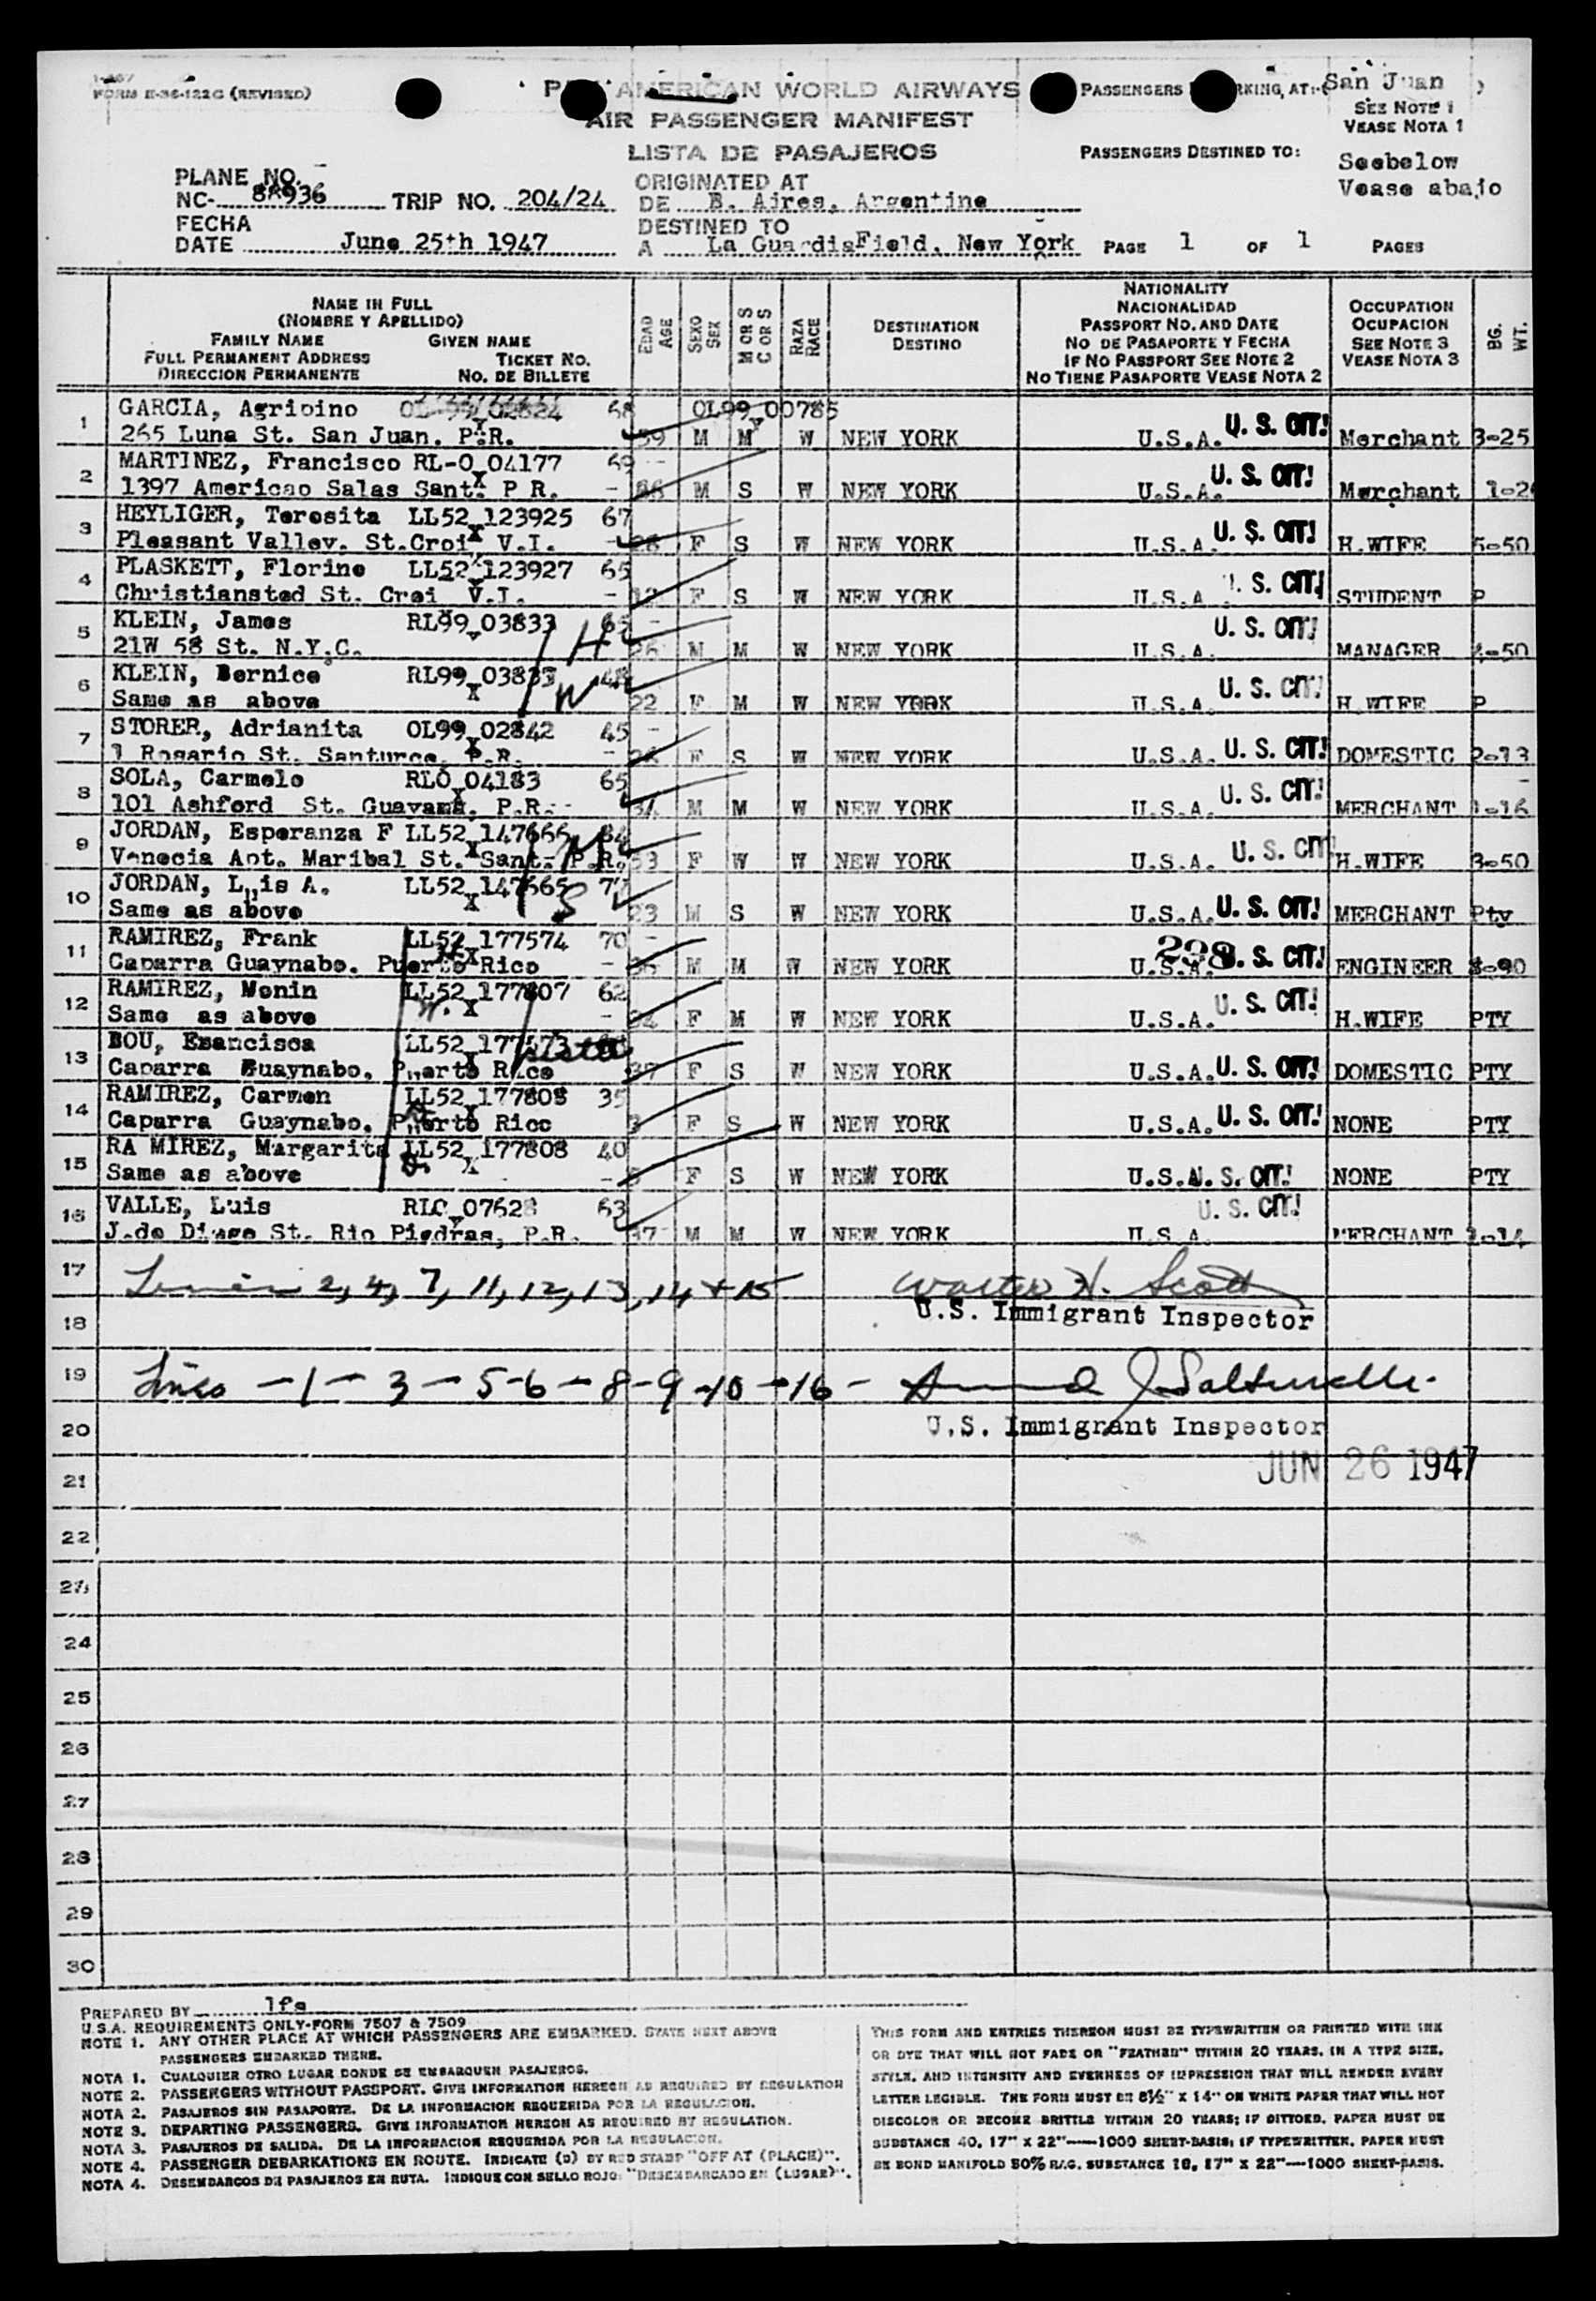 I-467
FORM E-36-122G (REVISED)
AMERICAN WORLD AIRWAYS
PASSENGERS RKING, AT:- San Juan
AIR PASSENGER MANIFEST
SEE NOTE 1
VEASE NOTA 1
LISTA DE PASAJEROS
PASSENGERS DESTINED TO:
Seebelow
Vease abajo
PLANE NO.
NC- 88936 TRIP NO. 204/24
ORIGINATED AT
DE B. Aires, Argentine
FECHA
DATE June 25th 1947
DESTINED TO
A La Guardia Field, New York PAGE 1 OF 1 PAGES
NAME IN FULL
(NOMBRE Y APELLIDO)
FAMILY NAME GIVEN NAME
FULL PERMANENT ADDRESS TICKET NO.
DIRECCION PERMANENTE NO. DE BILLETE
EDAD AGE
SEXO SEX
M OR S C OR S
RAZA RACE
DESTINATION
DESTINO
NATIONALITY
NACIONALIDAD
PASSPORT NO. AND DATE
NO DE PASAPORTE Y FECHA
IF NO PASSPORT SEE NOTE 2
NO TIENE PASAPORTE VEASE NOTA 2
OCCUPATION
OCUPACION
SEE NOTE 3
VEASE NOTA 3
BG. WT.
1 GARCIA, Agripino 68 OL99 00785
265 Luna St. San Juan. P.R. 39 M M W NEW YORK U.S.A. U. S. CIT! Merchant 3-25
2 MARTINEZ, Francisco RL-0 04177 69
1397 Americao Salas Sant. P R. M S W NEW YORK U.S.A. U. S. CIT! Merchant
3 HEYLIGER, Teresita LL52 123925 67
Pleasant Valley. St.Croi V.I. 28 F S W NEW YORK U.S.A. U. S. CIT! H.WIFE 5-50
4 PLASKETT, Florine LL52 123927 65
Christiansted St. Croi V.I. F S W NEW YORK U.S.A S. CIT! STUDENT P
5 KLEIN, James RL99 03833 65 H
21W 58 St. N.Y.C. 26 M M W NEW YORK U.S.A. U. S. CIT! MANAGER 4-50
6 KLEIN, Bernice RL99 03833 W
Same as above 22 F M W NEW YORK U.S.A. U. S. CIT! H.WIFE P
7 STORER, Adrianita OL99 02842 45
1 Rosario St. Santurce. P.R. F S W NEW YORK U.S.A. U. S. CIT! DOMESTIC 2-13
8 SOLA, Carmelo RLO 04183 65
101 Ashford St. Guayama. P.R. 34 M M W NEW YORK U.S.A. U. S. CIT! MERCHANT 1-16
9 JORDAN, Esperanza F LL52 147666 84 M
Venecia Apt. Maribal St. Sant. P.R. 53 F W W NEW YORK U.S.A. U. S. CIT H.WIFE 3-50
10 JORDAN, Luis A. LL52 147665 77 S
Same as above 23 M S W NEW YORK U.S.A. U. S. CIT! MERCHANT Pty
11 RAMIREZ, Frank LL52 177574 70
Caparra Guaynabo. Puerto Rico M M W NEW YORK U.S.A. 298 U. S. CIT! ENGINEER 8-90
12 RAMIREZ, Monin LL52 177807 62
Same as above W. F M W NEW YORK U.S.A. U. S. CIT! H.WIFE PTY
13 BOU, Esancisca LL52 177573
Caparra Guaynabo, Puerto Rico 37 F S W NEW YORK U.S.A. U. S. CIT! DOMESTIC PTY
14 RAMIREZ, Carmen LL52 177808 35
Caparra Guaynabo, Puerto Rico F S W NEW YORK U.S.A. U. S. CIT! NONE PTY
15 RA MIREZ, Margarita LL52 177808 40
Same as above F S W NEW YORK U.S.A. S. CIT! NONE PTY
16 VALLE, Luis RLO 07628 63
J.de Diego St. Rio Piedras, P.R. 37 M M W NEW YORK U.S.A. U. S. CIT! MERCHANT 1-14
17 2, 4, 7, 11, 12, 13, 14 + 15 Walter H. Scott
18 U.S. Immigrant Inspector
19 Lines -1- 3 - 5-6 - 8-9-10-16 -
20 U.S. Immigrant Inspector
21 JUN 26 1947
22
23
24
25
26
27
28
29
30
PREPARED BY lfs
U.S.A. REQUIREMENTS ONLY-FORM 7507 & 7509
NOTE 1. ANY OTHER PLACE AT WHICH PASSENGERS ARE EMBARKED. STATE NEXT ABOVE
PASSENGERS EMBARKED THERE.
NOTA 1. CUALQUIER OTRO LUGAR DONDE SE EMBARQUEN PASAJEROS.
NOTE 2. PASSENGERS WITHOUT PASSPORT. GIVE INFORMATION HEREON AS REQUIRED BY REGULATION
NOTA 2. PASAJEROS SIN PASAPORTE. DE LA INFORMACION REQUERIDA POR LA REGULACION.
NOTE 3. DEPARTING PASSENGERS. GIVE INFORMATION HEREON AS REQUIRED BY REGULATION.
NOTA 3. PASAJEROS DE SALIDA. DE LA INFORMACION REQUERIDA POR LA REGULACION.
NOTE 4. PASSENGER DEBARKATIONS EN ROUTE. INDICATE (D) BY RED STAMP "OFF AT (PLACE)".
NOTA 4. DESEMBARCOS DE PASAJEROS EN RUTA. INDIQUE CON SELLO ROJO: "DESEMBARCADO EN (LUGAR)".
THIS FORM AND ENTRIES THEREON MUST BE TYPEWRITTEN OR PRINTED WITH INK
OR DYE THAT WILL NOT FADE OR "FEATHER" WITHIN 20 YEARS, IN A TYPE SIZE,
STYLE, AND INTENSITY AND EVENNESS OF IMPRESSION THAT WILL RENDER EVERY
LETTER LEGIBLE. THE FORM MUST BE 8½" X 14" ON WHITE PAPER THAT WILL NOT
DISCOLOR OR BECOME BRITTLE WITHIN 20 YEARS; IF DITTOED, PAPER MUST BE
SUBSTANCE 40, 17" X 22"—1000 SHEET-BASIS; IF TYPEWRITTEN, PAPER MUST
BE BOND MANIFOLD 50% RAG, SUBSTANCE 18, 17" X 22"—1000 SHEET-BASIS.